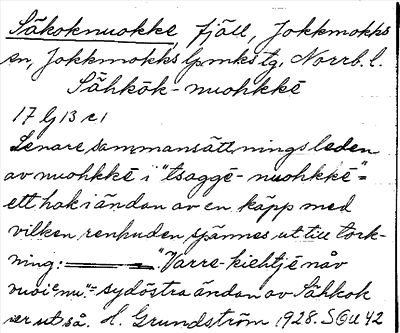 Såkoknuokke, fjäll, Jokkmokks
sn, Jokkmokks lpmks tg, Norrb. l.
Såhkŏk-nuohkkē
17 lg 13 c 1
Senare sammansättningsleden
av nuohkkē i "tsaggē-nuohkkē"=
ett hak i ändan av en käpp med
vilken renhuden spännes ut till tork-
ning: "Varre-kiehtjē nåv
=sydöstra ändan av Såhkok
ser ut så. H. Grundström 1928. SGU 42